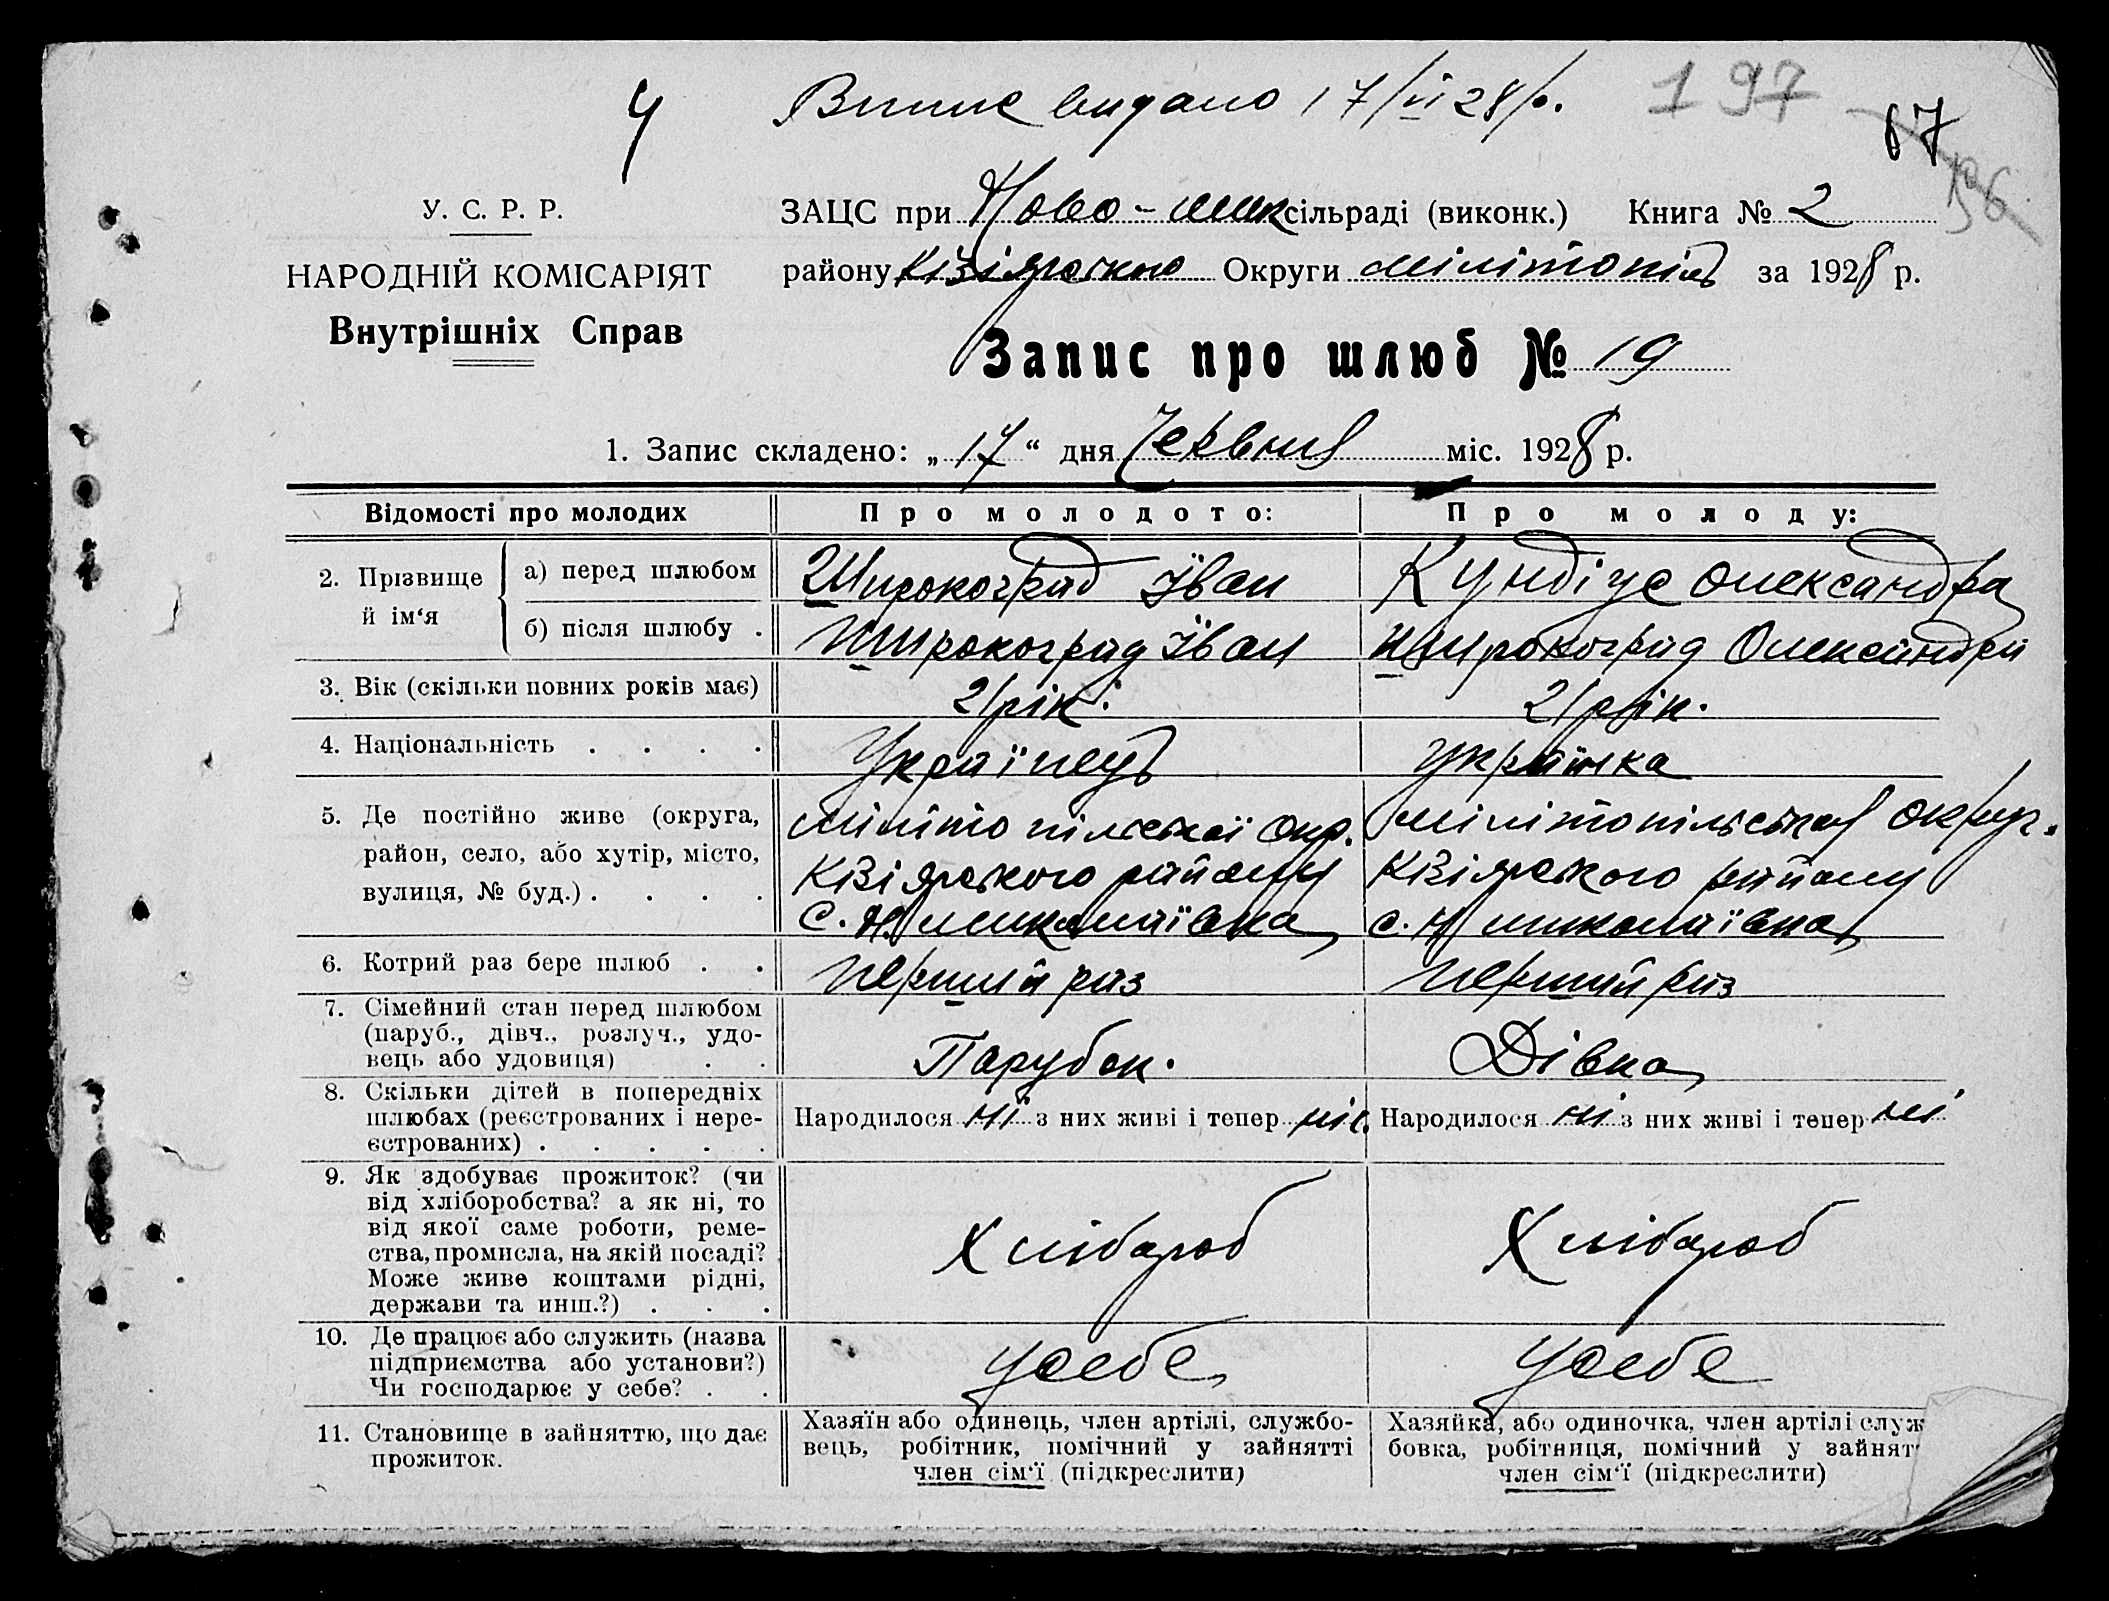 Ч Випис видано 17/VI 28 р. 197 67
196
У. С. Р. Р.
НАРОДНІЙ КОМІСАРІЯТ
Внутрішніх Справ
ЗАЦС при Ново-мик сільраді (виконк.) Книга № 2
району Кізіярського Округи мілітопіль за 1928 р.
Запис про шлюб № 19
1. Запис складено: „ 17 “ дня Червня міс. 1928 р.
Відомості про молодих Про молодого: Про молоду:
2. Прізвище й ім‘я
а) перед шлюбом Широкоград Їван Кундіус Олександра
б) після шлюбу . Широкоград Їван Широкоград Олександра
3. Вік (скільки повних років має) 21 рік. 21 рік.
4. Національність . . . . Українець Українка
5. Де постійно живе (округа, мілітопільської окр. мілітопільська округ.
район, село, або хутір, місто, Кізіярського району Кізіярського району
вулиця, № буд.) . . . . с. Н миколаївка с. Н миколаївка
6. Котрий раз бере шлюб . . перший раз перший раз
7. Сімейний стан перед шлюбом
(паруб., дівч., розлуч., удо-
вець або удовиця) . . Парубок. Дівка
8. Скільки дітей в попередніх
шлюбах (реєстрованих і нере- Народилося ні з них живі і тепер ні Народилося ні з них живі і тепер ні
єстрованих) . . . . .
9. Як здобуває прожиток? (чи
від хліборобства? а як ні, то
від якої саме роботи, реме-
ства, промисла, на якій посаді? Хлібароб Хлібароб
Може живе коштами рідні,
держави та инш.?) . . .
10. Де працює або служить (назва
підприємства або установи?) усебе усебе
Чи господарює у себе? . .
11. Становище в зайняттю, що дає
прожиток.
Хазяїн або одинець, член артілі, службо-
вець, робітник, помічний у зайнятті
член сім‘ї (підкреслити)
Хазяйка, або одиночка, член артілі служ
бовка, робітниця, помічний у зайнят
член сім‘ї (підкреслити)